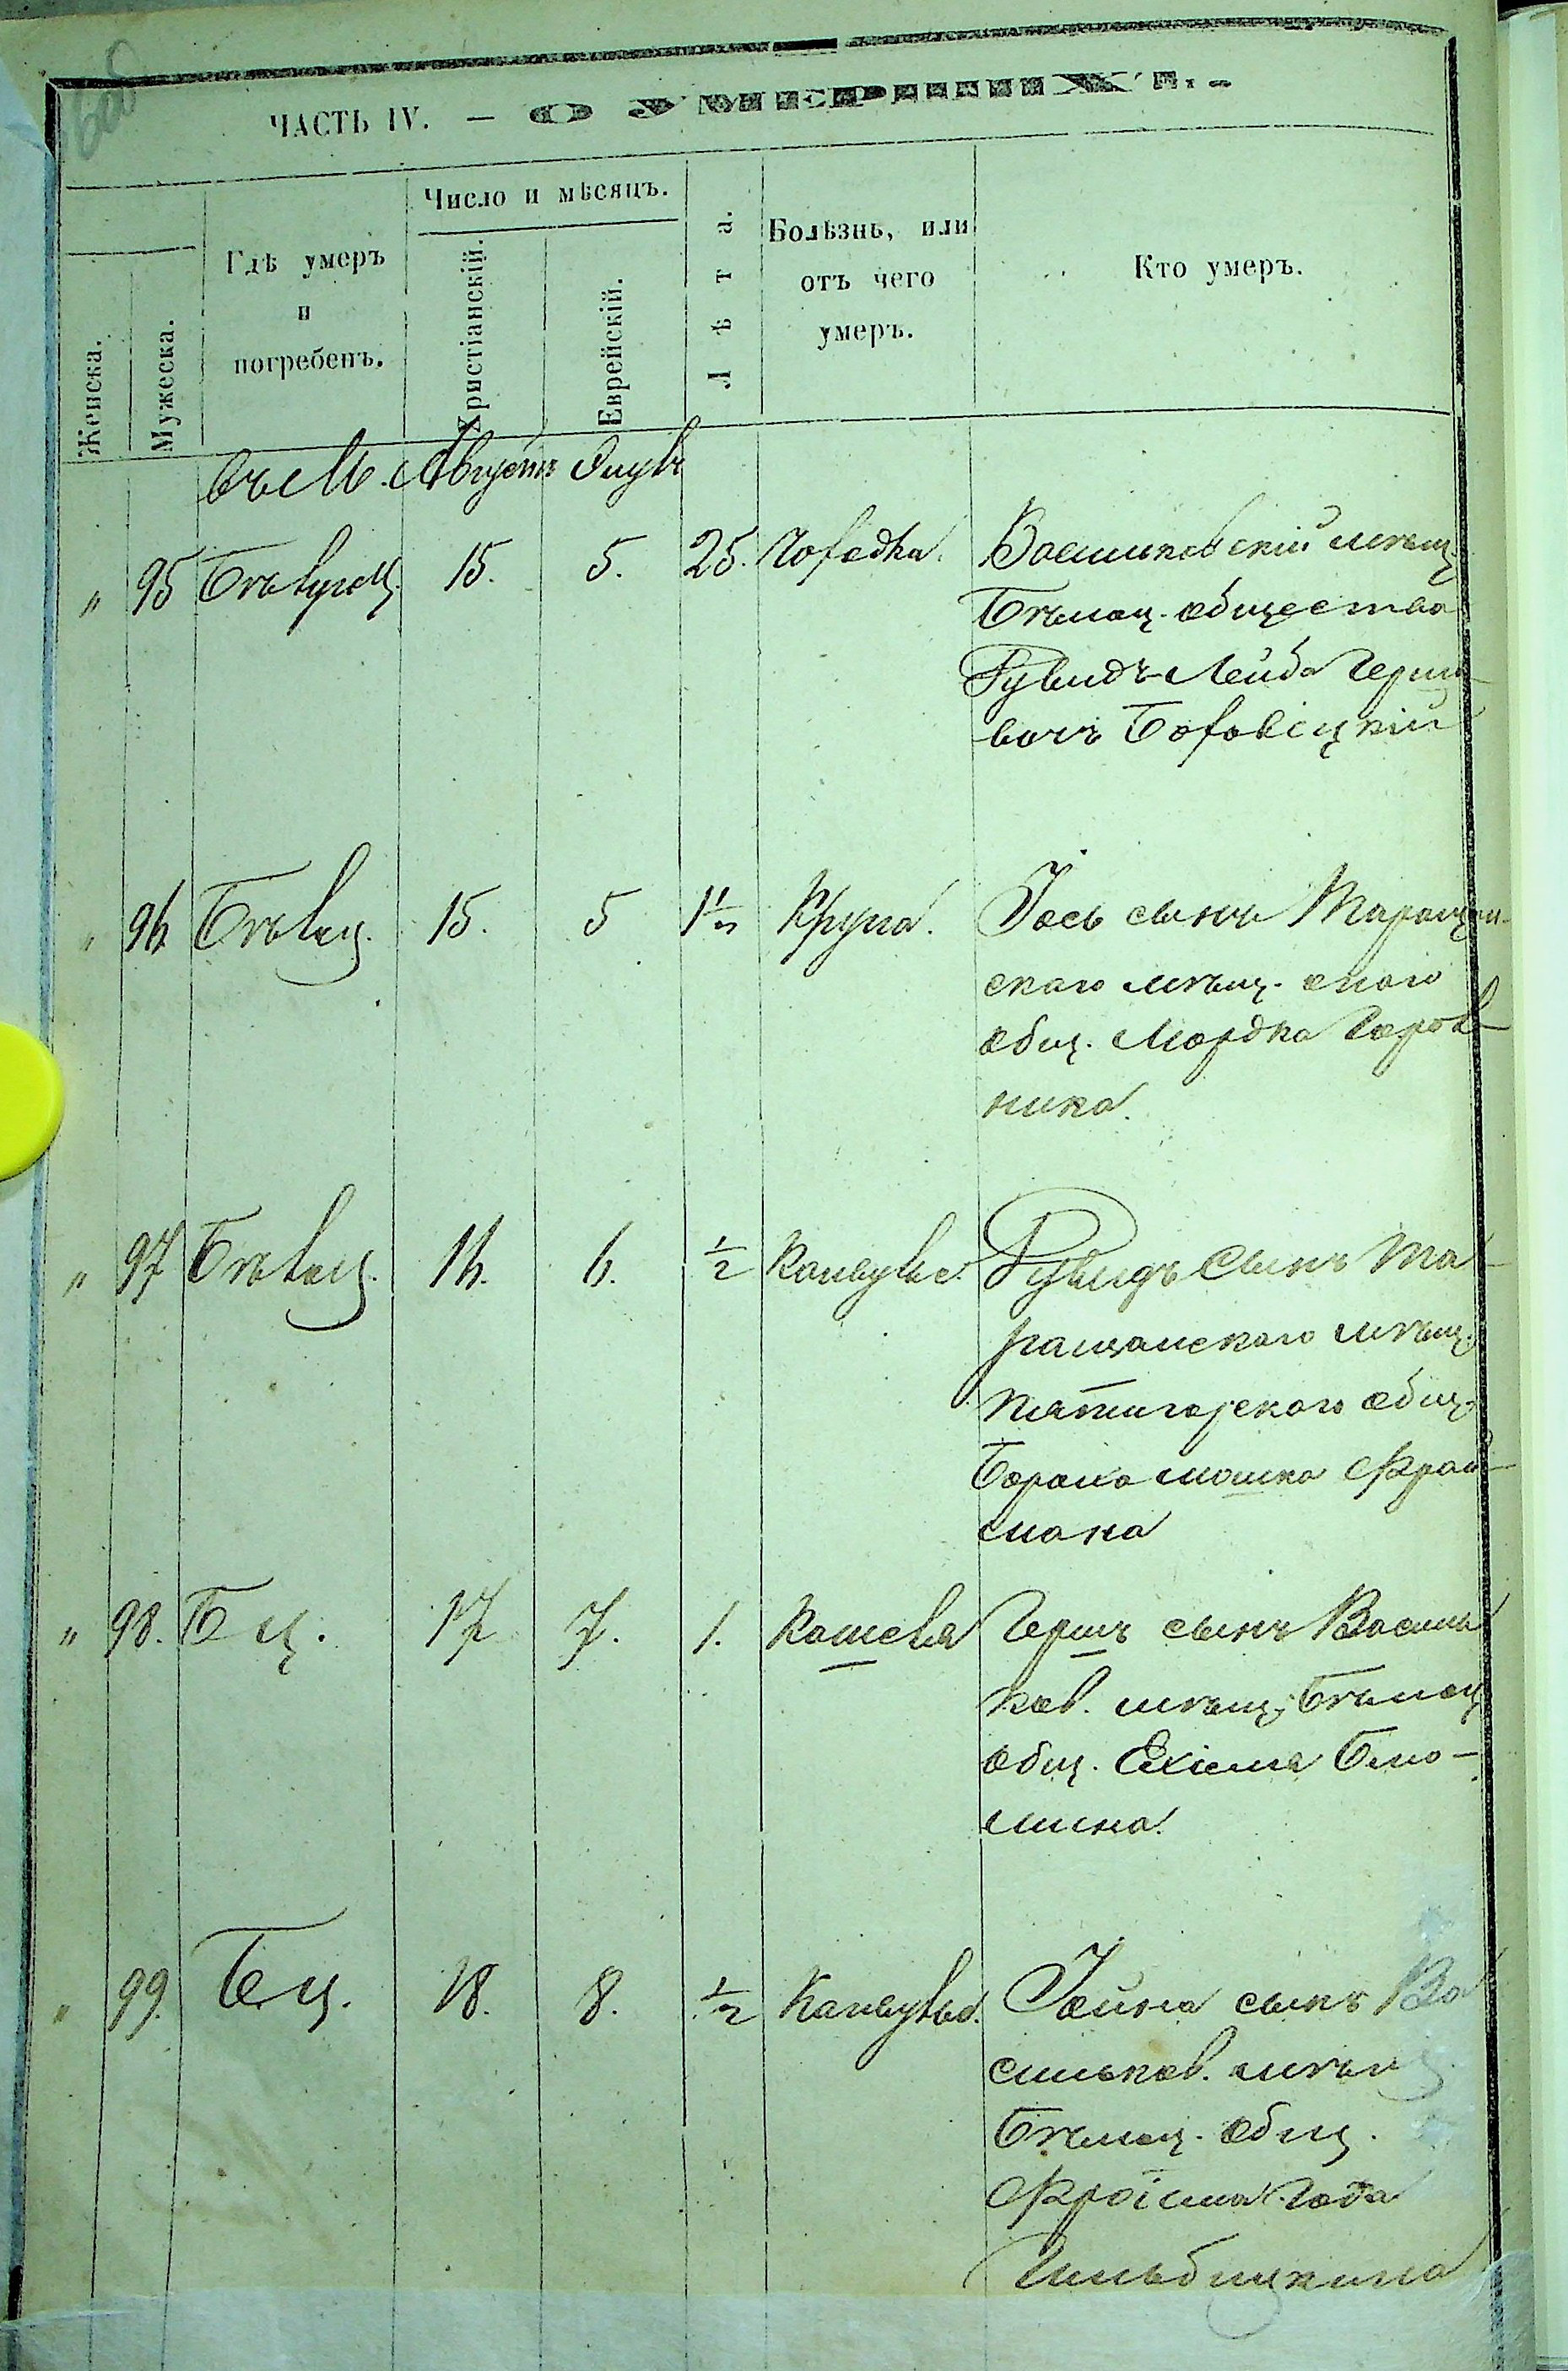 ЧАСТЬ IV. — О УМЕРШИХЪ.
Женска.
Мужеска.
Гдѣ умеръ
и
погребенъ.
Число и мѣсяцъ.
Христіанскій.
Еврейскій.
Лѣта.
Болѣзнь, или
отъ чего
умеръ.
Кто умеръ.
въ М. Августъ Элулъ
" 95 15. 5. 25. Горячка. Васильковскій мѣщ.
Бѣлоц. общества
Рувинъ Лейба Герш-
Боровіцкій
" 96 Бѣл.ц. 15. 5 1½ Крупа. Іось сынъ Таращан-
скаго мѣщ. оного
общ. Мордка
ника.
" 97 Бѣл.ц. 16. 6. ½ Конвульс. Рувинъ сынъ Та-
ращанскаго мѣщ.
пятигорскаго общ.
Бороха мошка Фрай-
мана
" 98. Б ц. 17 7. 1. Кашеля Гершъ сынъ Василь-
ков. мѣщ. Бѣлоц
общ. Ехіеля Блю-
мина.
" 99. Б.ц. 18. 8. ½ Конвульс. Іойна сынъ Ва
сильков. мѣщ.
Бѣлоц. общ.
Фроіма